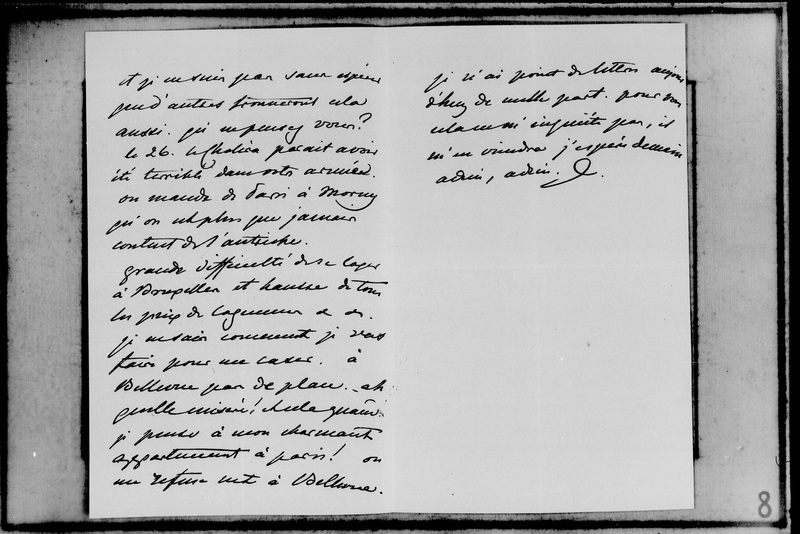 et je ne suis pas sans espérer
que d'autres trouveront cela
aussi. qu'en pensez vous?
le 26. le Choléra parait avoir
été terrible dans votre armée.
on mande de Paris à Morny
qu'on est plus que jamais
content de l'autriche.
grande difficulté de se loger
à Bruxelles et hausse de tous
les prix de logemens &
je ne sais comment je vais
faire pour me caser. à
Bellevue pas de place. ah
quelle misère! et cela quand
je pense à mon charmant
appartement à paris! on
me refuse net à Bellevue.
je n'ai point de lettres aujour
d'huy de nulle part. pour vous
cela ne m'inquiète pas, il
m'en viendra j'espère demain
adieu, adieu.
8